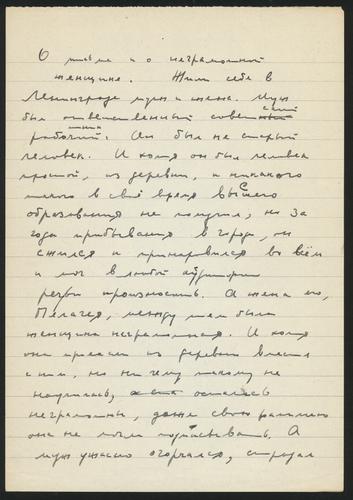 О письме и о неграмотной
женщине. Жили себе в
Ленинграде муж и жена. Муж
был ответственный советский
работник. Он был не старый
человек. И хотя он был человек
простой, из деревни, и никакого
такого в своё время высшего
образования не получил, но за
года прибывания в городе, он
и принаровился во всём
и мог в любой аудитории
речи произносить. А жена его,
Пелагея, между тем была
женщина неграмотная. И хотя
она приехала из деревни вместе
с ним, но ничему такому не
научилась, осталась
неграмотны, даже свою фамилию
она не могла подписывать. А
муж ужасно огорчался, страдал